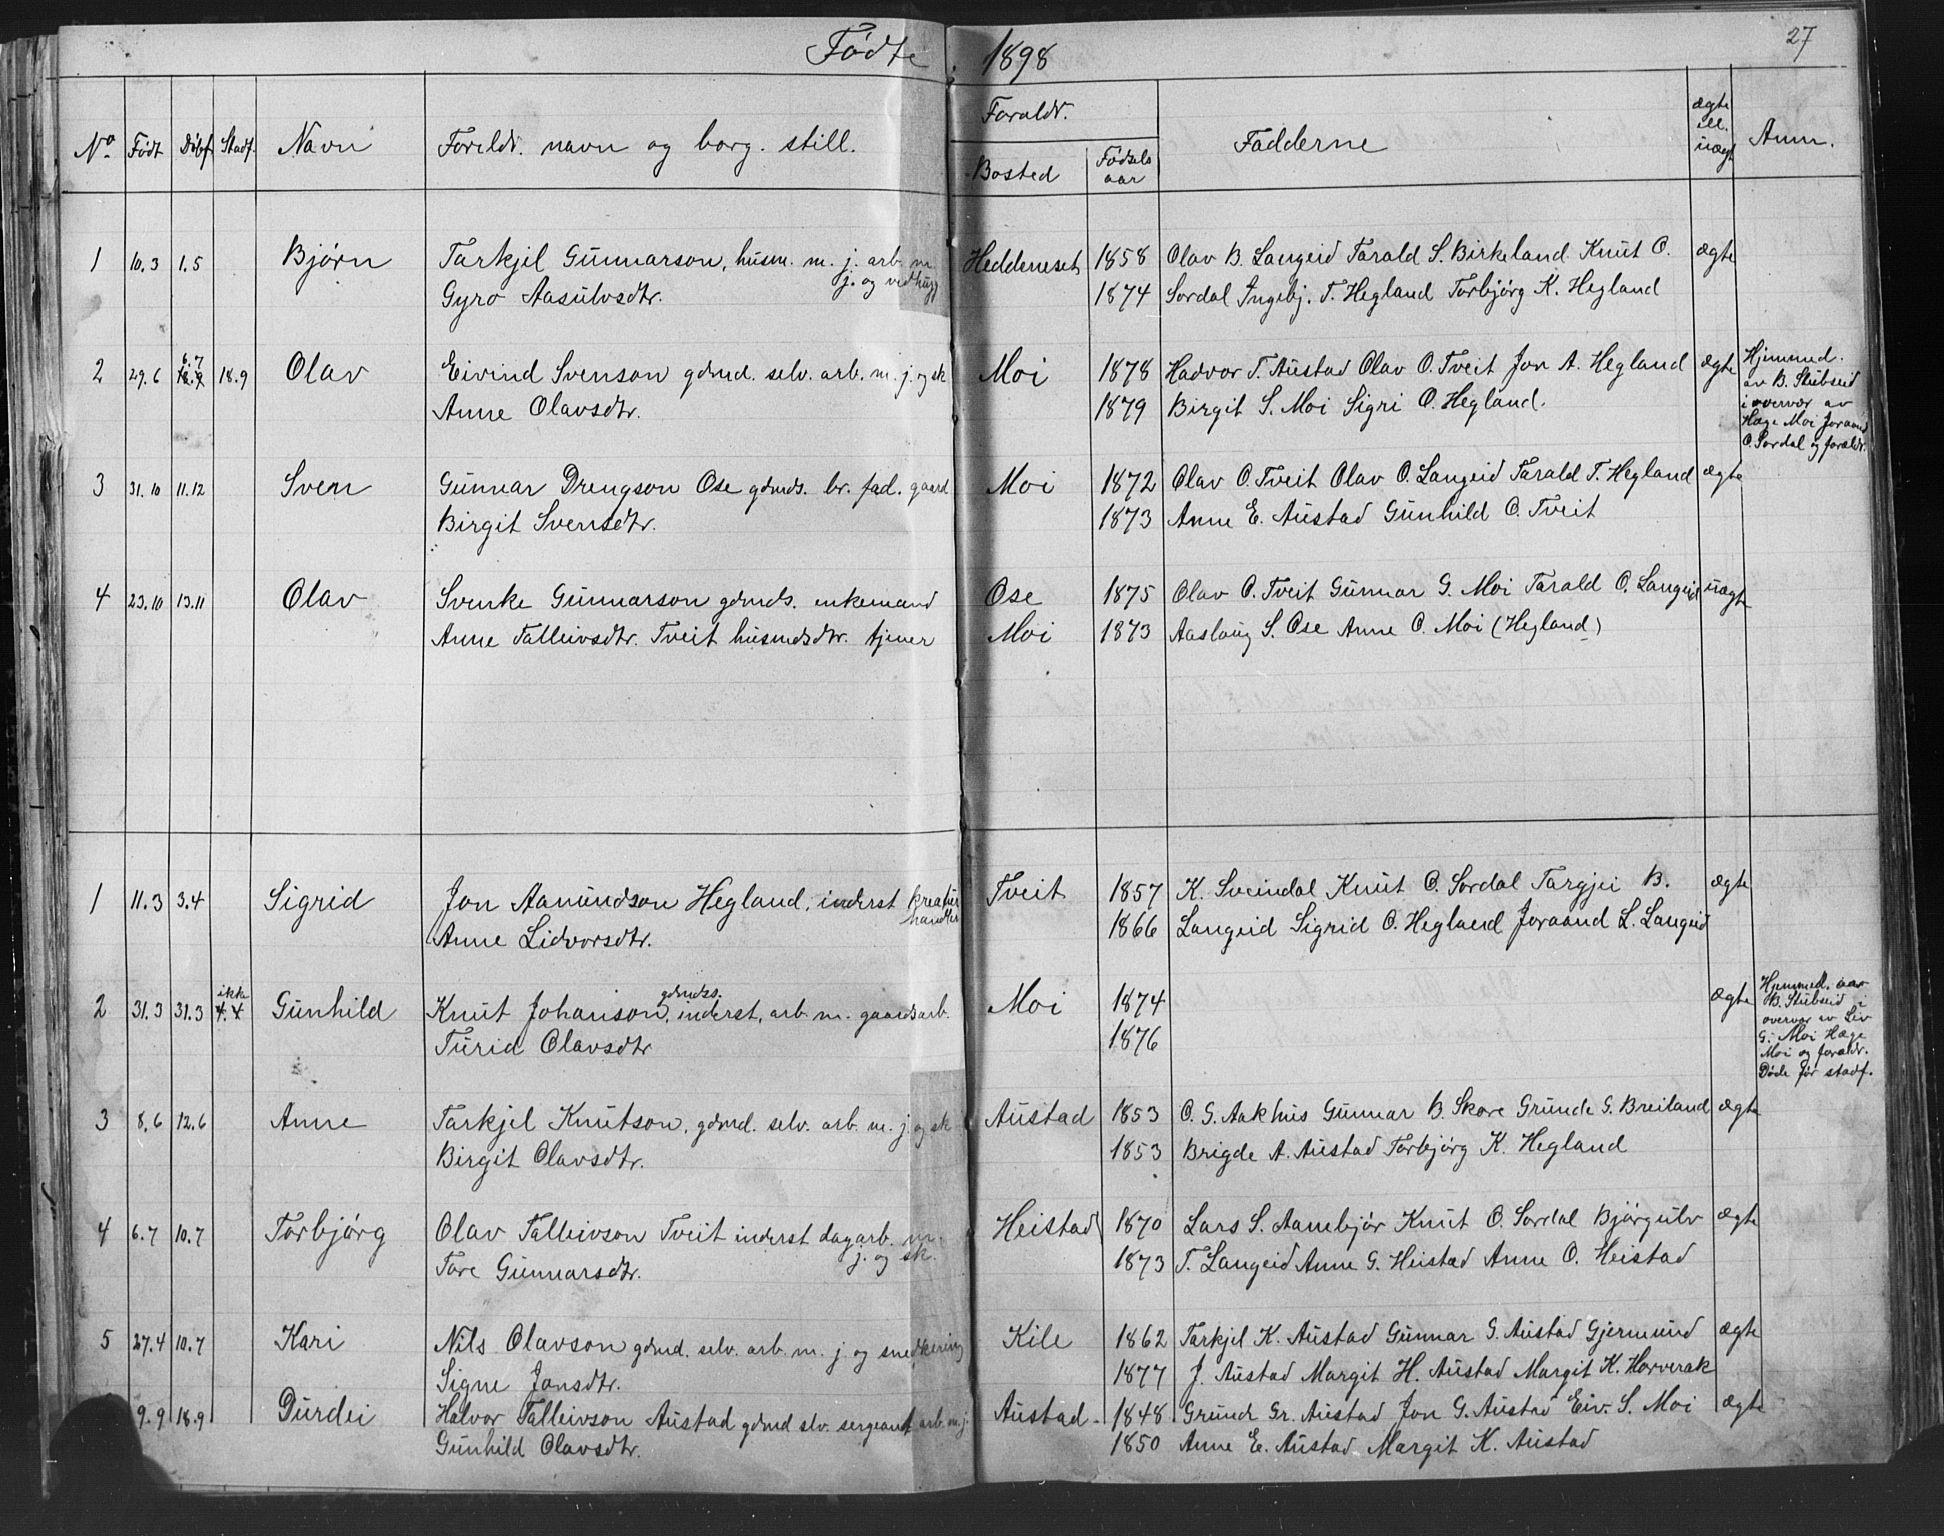 Födte i 1898
27
No. Födt Döbt Stadf. Navn Foreldr. navn og borg. still. Foraldr. Bosted Födsels aar Fadderne ægte ell. uægt Anm.
1 10.3 1.5 Bjørn Tarkjel Gunnarson, husm. m. j. arb. m. Heddeneset 1858 Olav B. Langeid Tarald S. Birkeland Knut O. ægte
j. og vedhugg
Gyro Aasulvsdtr. 1874 Sordal Ingebj. T. Hegland Torbjørg K. Hegland
2 29.6 6.7 18.9 Olav Eivind Svenson gdmd. selv. arb. m. j. og sk Moi 1878 Hadvor T. Austad Olav O. Tveit Jon A. Hegland ægte Hjemmed.
Anne Olavsdtr. 1879 Birgit S. Moi Sigri O. Hegland.
av B. Stubseid
i overvær av
Hæge Moi Joraand
O. Sordal og foraldr.
3 31.10 11.12 Sven Gunnar Drengson Ose gdmds. br. fad. gaard Moi 1872 Olav O. Tveit Olav O. Langeid Tarald T. Hegland ægte
Birgit Svensdtr. 1873 Anne E. Austad Gunhild O. Tveit
4 23.10 13.11 Olav Svenke Gunnarson gdmds. enkemand Ose 1875 Olav O. Tveit Gunnar G. Moi Tarald O. Langeid uægte
Anne Talleivsdtr. Tveit husmdsdtr. tjener Moi 1873 Aaslaug S. Ose Anne O. Moi (Hegland)
1 11.3 3.4 Sigrid Jon Aamundson Hegland, inderst kreatur Tveit 1857 K. Sveindal Knut O. Sordal Targjei B. ægte
handler
Anne Lidvorsdtr. 1866 Langeid Sigrid O. Hegland Joraand L. Langeid
2 31.3 31.3 ikke 4.4 Gunhild Knut Johanson, gdmds. inderst, arb. m. gaardsarb. Moi 1874 ægte Hjemmed. av
Turid Olavsdtr 1876
B. Stubseid i
overvær av Liv
G. Moi Hæge
Moi og foraldr.
Døde før stadf.
3 8.6 12.6 Anne Tarkjel Knutson, gdmd. selv. arb. m. j. og sk Austad 1853 O. G. Aakhus Gunnar B. Skore Grunde G. Breiland ægte
Birgit Olavsdtr. 1853 Brigde A. Austad Torbjørg K. Hegland
4 6.7 10.7 Torbjørg Olav Talleivson Tveit inderst dagarb. m. Heistad 1870 Lars S. Aamebjør Knut O. Sordal Bjørgulv ægte
j. og sk.
Tore Gunnarsdtr. 1873 T. Langeid Anne G. Heistad Anne O. Heistad
5 27.4 10.7 Kari Nils Olavson gdmd. selv. arb. m. j. og snedkering Kile 1862 Tarkjel K. Austad Gunnar G. Austad Gjermund ægte
Signe Jonsdtr. 1877 J. Austad Margit H. Austad Margit K. Harverak
9.9 18.9 Durdei Halvor Talleivson Austad gdmd slv. sergeant arb. m. j. Austad 1848 Grunde Gr. Austad Jon G. Austad Eiv. S. Moi ægte
Gunhild Olavsdtr. 1850 Anne E. Austad Margit K. Austad